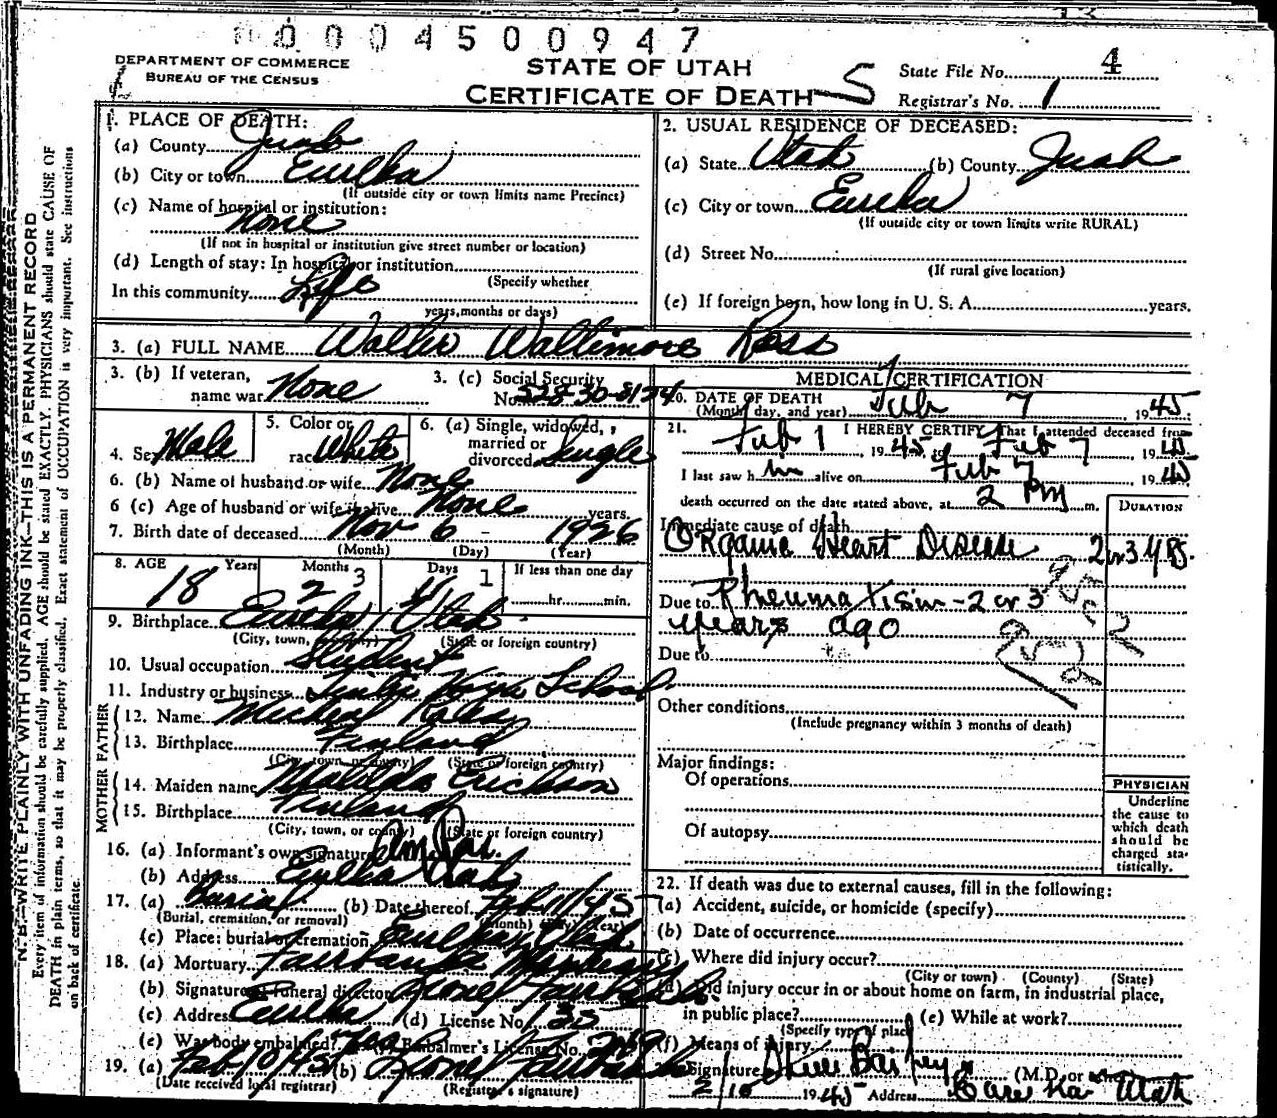 0004500947
DEPARTMENT OF COMMERCE
BUREAU OF THE CENSUS
STATE OF UTAH
CERTIFICATE OF DEATH
5
State File No. 4
Registrar's No. 1
N. B.—WRITE PLAINLY WITH UNFADING INK—THIS IS A PERMANENT RECORD
Every item of information should be carefully supplied. AGE should be stated EXACTLY. PHYSICIANS should state CAUSE OF
DEATH in plain terms, so that it may be properly classified. Exact statement of OCCUPATION is very important. See instructions
on back of certificate.
1. PLACE OF DEATH:
(a) County Juab
(b) City or town Eureka
(If outside city or town limits name Precinct)
(c) Name of hospital or institution:
None
(If not in hospital or institution give street number or location)
(d) Length of stay: In hospital or institution
(Specify whether
In this community Life
years, months or days)
2. USUAL RESIDENCE OF DECEASED:
(a) State Utah (b) County Juab
(c) City or town Eureka
(If outside city or town limits write RURAL)
(d) Street No.
(If rural give location)
(e) If foreign born, how long in U. S. A. years.
3. (a) FULL NAME Walter Waltimore Ross
3. (b) If veteran, name war None
3. (c) Social Security No. 528-30-8124
4. Sex Male
5. Color or race White
6. (a) Single, widowed, married or divorced Single
6. (b) Name of husband or wife None
6 (c) Age of husband or wife if alive None years.
7. Birth date of deceased Nov 6 - 1926
(Month) (Day) (Year)
8. AGE Years Months Days If less than one day
18 2 3 4 1 hr. min.
9. Birthplace Eureka Utah
(City, town, or county) (State or foreign country)
10. Usual occupation Student
11. Industry or business School
FATHER
12. Name Michael Ross
13. Birthplace Finland
(City, town, or county) (State or foreign country)
MOTHER
14. Maiden name Matilda Erickson
15. Birthplace Finland
(City, town, or county) (State or foreign country)
16. (a) Informant's own signature
(b) Address Eureka Utah
17. (a) Burial (b) Date thereof Feb 11/45
(Burial, cremation, or removal) (Month) (Day) (Year)
(c) Place: burial or cremation Eureka Utah
18. (a) Mortuary Fairbanks Mortuary
(b) Signature of funeral director Lionel Fairbanks
(c) Address Eureka (d) License No. 135
(e) Was body embalmed? Yes Embalmer's License No.
19. (a) Feb 10/45 (b) Lionel Fairbanks
(Date received local registrar) (Registrar's signature)
MEDICAL CERTIFICATION
20. DATE OF DEATH
(Month, day, and year) Feb 7 1945
21. I HEREBY CERTIFY, That I attended deceased from
Feb 1, 1945 to Feb 7, 1945
I last saw h im alive on Feb 7 1945
death occurred on the date stated above, at 2 PM m.
DURATION
Immediate cause of death
Organic Heart Disease 2 or 3 yrs.
Due to Rheumatism - 2 or 3
years ago
Due to
Other conditions
(Include pregnancy within 3 months of death)
Major findings:
Of operations
Of autopsy
PHYSICIAN
Underline
the cause to
which death
should be
charged sta-
tistically.
22. If death was due to external causes, fill in the following:
(a) Accident, suicide, or homicide (specify)
(b) Date of occurrence
(c) Where did injury occur?
(City or town) (County) (State)
(d) Did injury occur in or about home on farm, in industrial place,
in public place? (e) While at work?
(Specify type of place)
(f) Means of injury
Signature Steele Bailey (M.D. or
2/10 1945 Address Eureka Utah